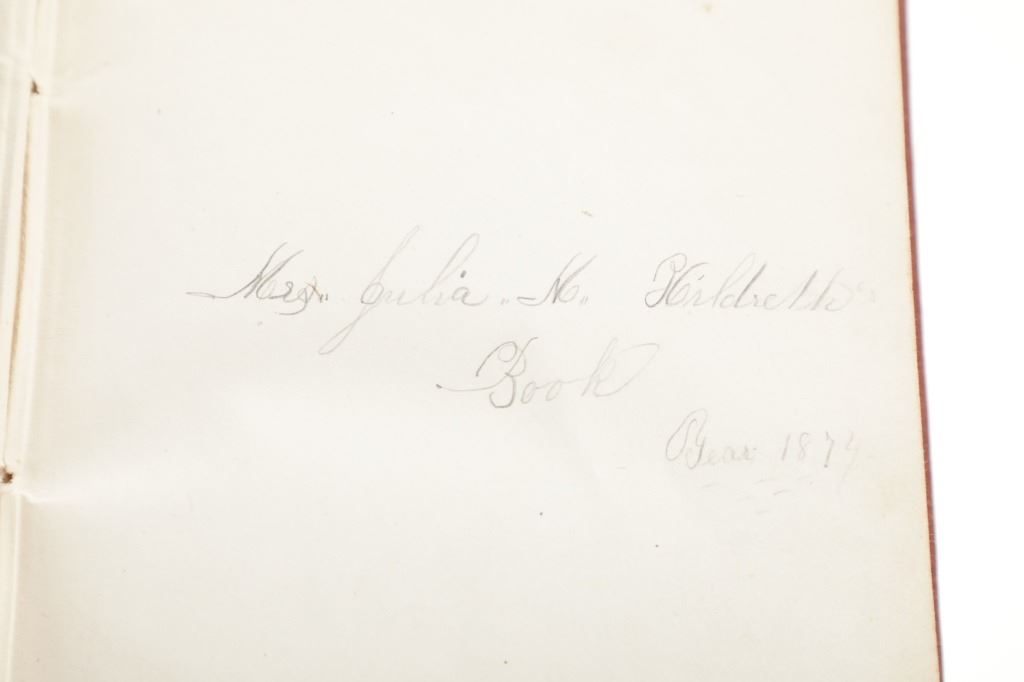 Mrs. Julia. M. Hildreth's
Book
Year 1877